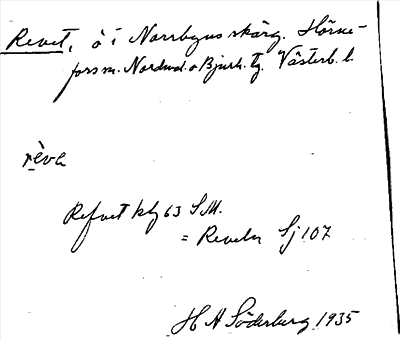 Revet, ö i Norrbyns skärg. Hörne-
fors sn. Nordmal. o Bjurh. tg. Västerb. l.
rèvɐ
Refvet kbl 63 S.M.
= Reveln Sj 107
H A Söderberg 1935